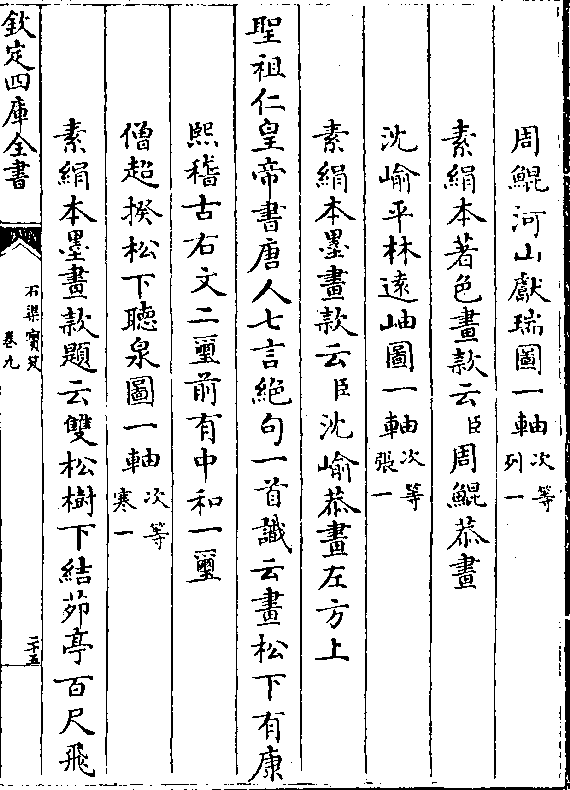 周鯤河山獻瑞圖一軸次等列一
素絹本著色畫款云臣周鯤恭畫
沈崳平林逺岫圖一軸次等張一
素絹本墨畫款云臣沈崳恭畫左方上
聖祖仁皇帝書唐人七言絶句一首識云畫松下有康
熙稽古右文二璽前有中和一璽
僧超揆松下聽泉圖一軸次等寒一
素絹本墨畫款題云雙松樹下結茆亭百尺飛
欽定四庫全書
石渠寳笈
卷九
二十五